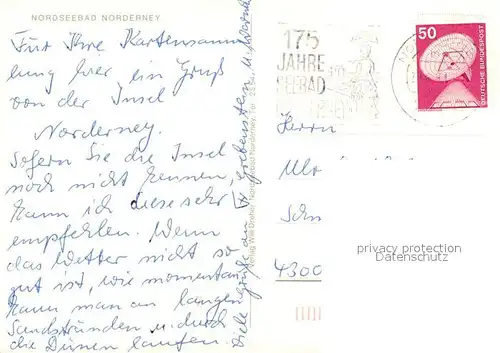 NORDSEEBAD NORDERNEY
Für Ihre Kartensamm
lung hier ein Gruß
von der Insel
Norderney.
Sofern Sie die Insel
noch nicht kennen,
kann ich diese sehr
empfehlen. Wenn
das Wetter nicht so
gut ist, wie momentan
kann man an langen
Sandstränden u. durch
die Dünen laufen.
Viele Grüße an
175
JAHRE
SEEBAD
50
DEUTSCHE BUNDESPOST
Herrn
4300
privacy protection
Datenschutz